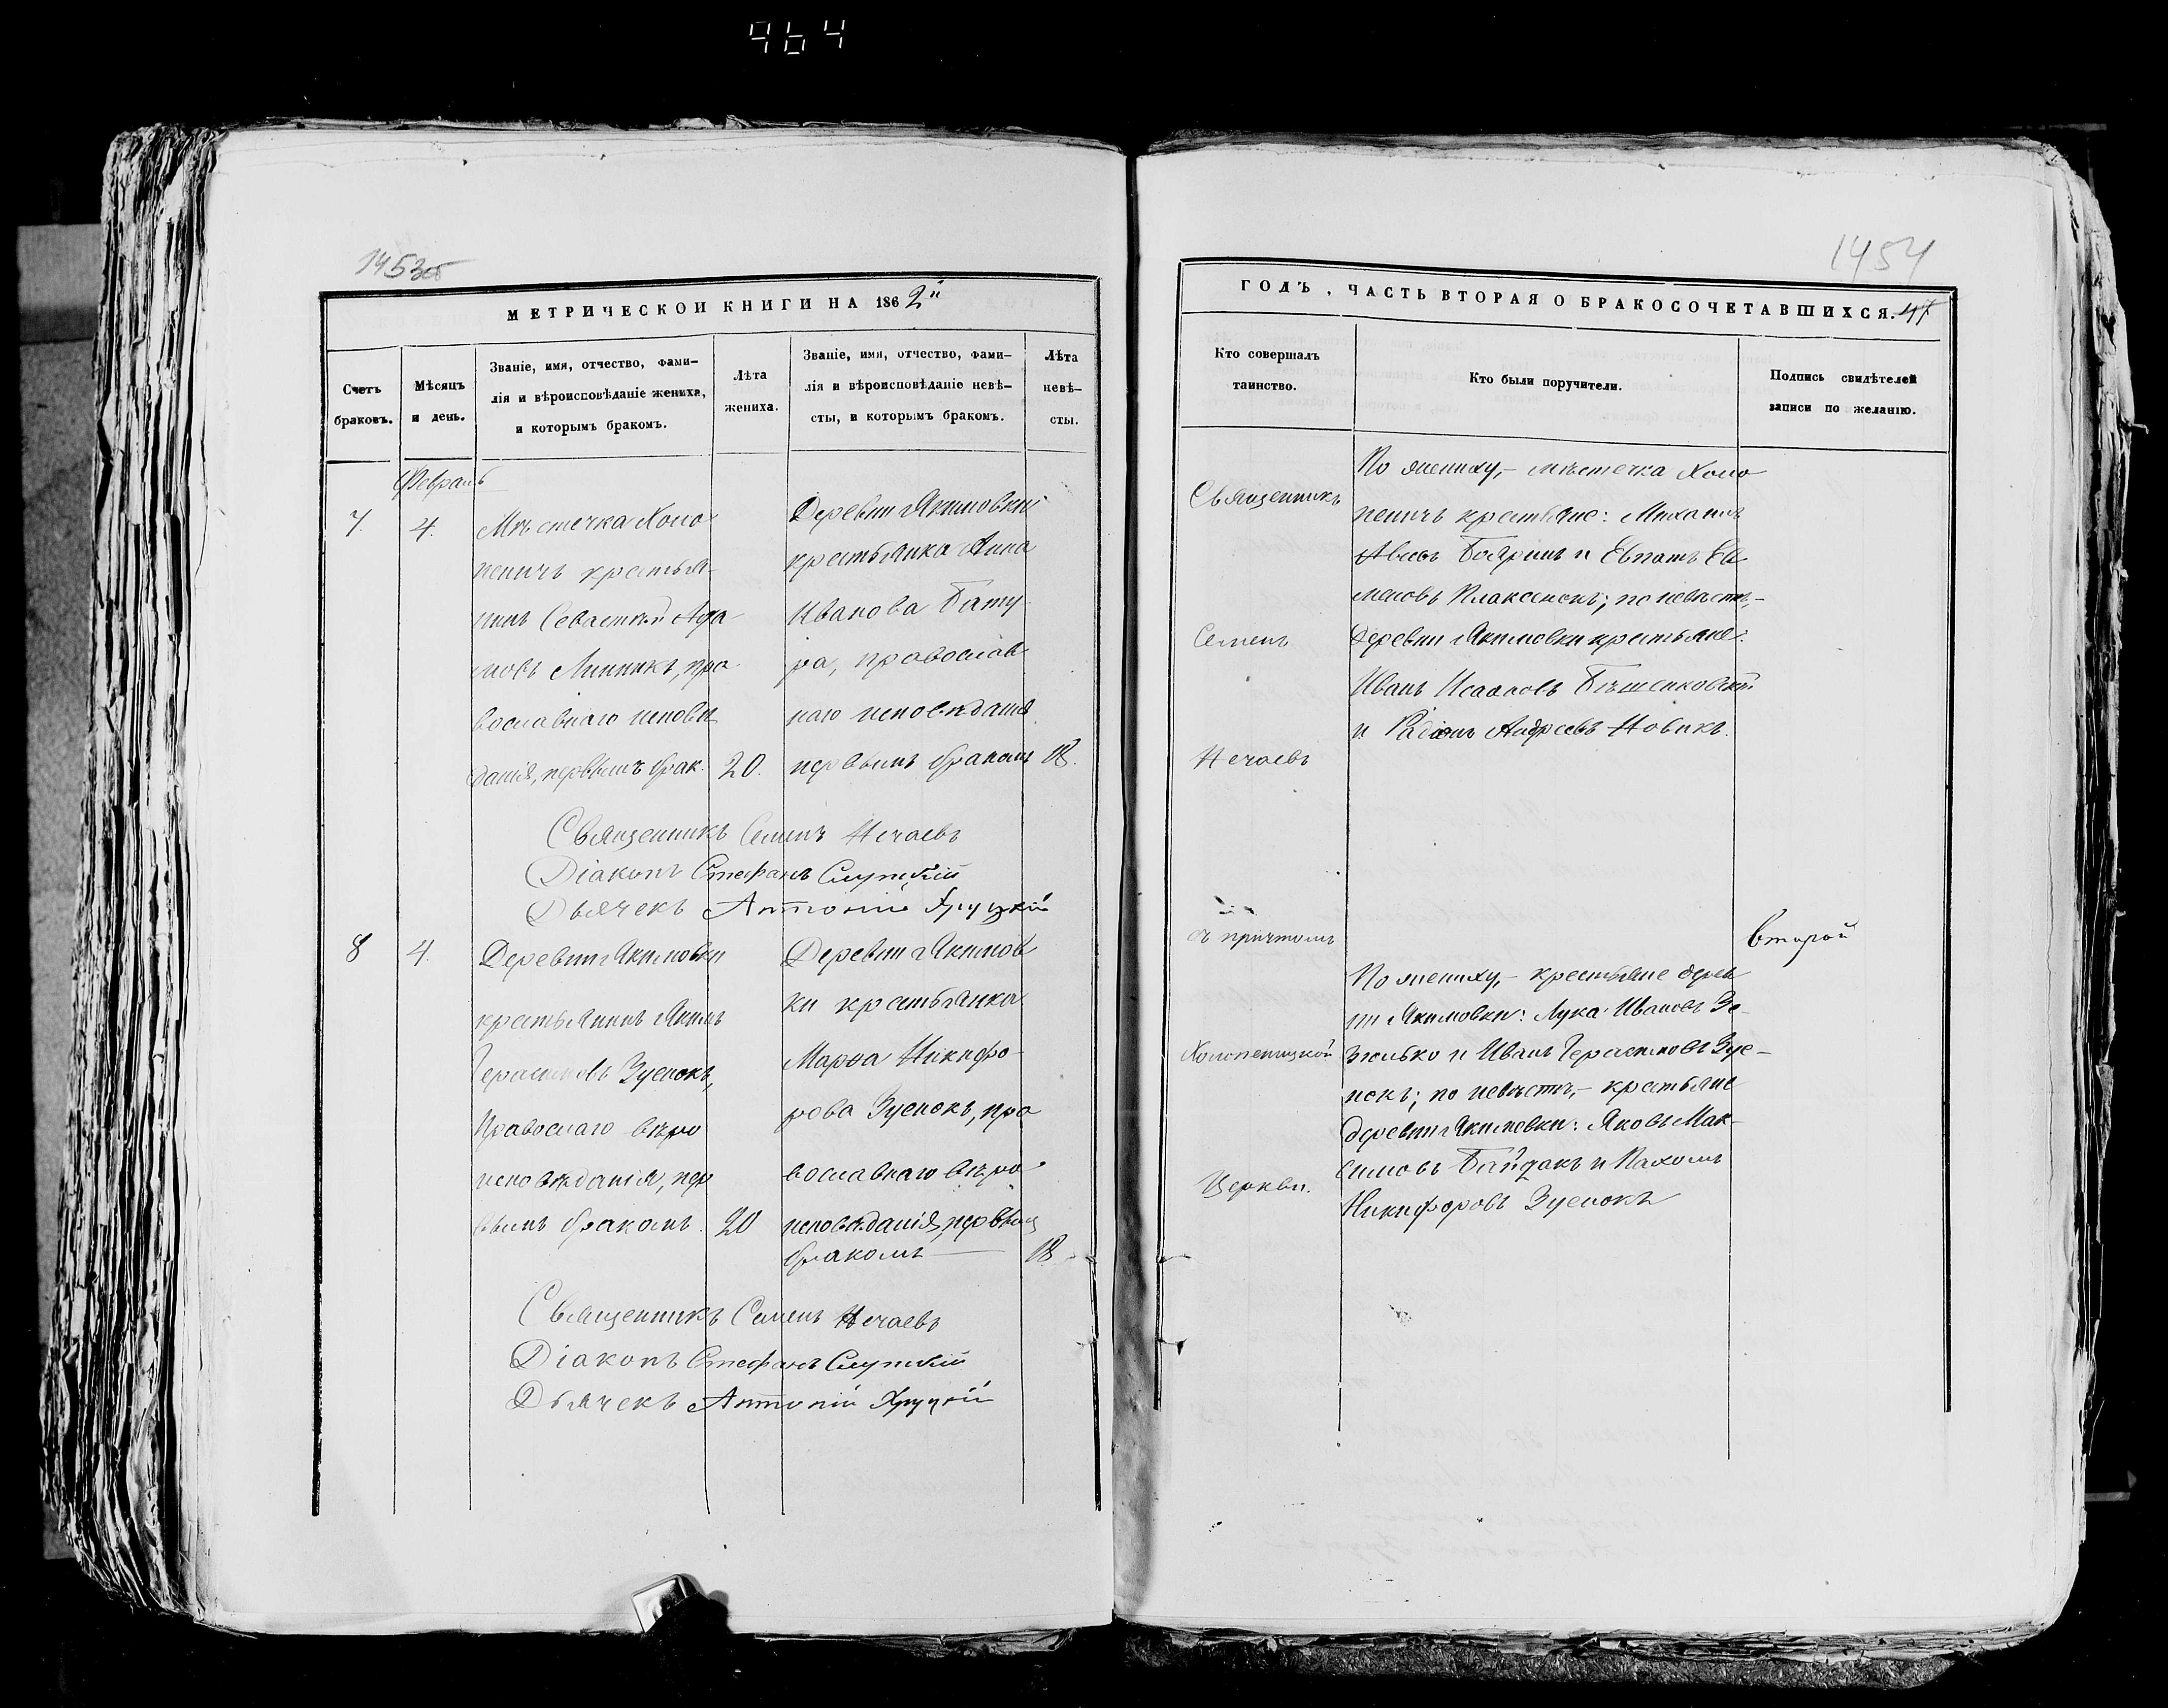 964
1453об
МЕТРИЧЕСКОЙ КНИГИ НА 1862й
Счетъ браковъ.
Мѣсяцъ и день.
Званіе, имя, отчество, фами-
лія и вѣроисповѣданіе жениха,
и которымъ бракомъ.
Лѣта жениха.
Званіе, имя, отчество, фами-
лія и вѣроисповѣданіе невѣ-
сты, и которымъ бракомъ.
Лѣта невѣ-
сты.
Февраль
7. 4.
Мѣстечка Холо
пеничъ крестья-
нинъ Севастіан Ада-
мовъ Линникъ, пра-
вославнаго исповѣ
данія, первымъ брак. 20.
Деревни Якимовки
крестьянка Анна
Иванова Бату-
ра, православ
наго исповѣданія
первымъ бракомъ 18.
Священникъ Семенъ Нечаевъ
Діаконъ Стефанъ Слупскій
Дьячекъ Антоній Хруцкій
8 4.
Деревни Якимовки
крестьянинъ Якимъ
Герасимовъ Зуенокъ,
Православнаго вѣро
исповѣданія, пер
вымъ бракомъ. 20
Деревни Якимов
ки крестьянка
Марѳа Никифо-
рова Зуенокъ, пра
вославнаго вѣро-
исповѣданія, первым
бракомъ 18
Священникъ Семенъ Нечаевъ
Діаконъ Стефанъ Слупскій
Дьячекъ Антоній Хруцкій
1454
ГОДЪ, ЧАСТЬ ВТОРАЯ О БРАКОСОЧЕТАВШИХСЯ.
Кто совершалъ
таинство.
Кто были поручители.
Подпись свидѣтелей
записи по желанію.
Священникъ
Семенъ
Нечаевъ
съ причтомъ
Холопеницкой
Церкви.
По жениху,- мѣстечка Холо
пеничъ крестьяне: Михаилъ
Бояринъ и
Плаксенокъ; по невѣстѣ,-
Деревни Якимовки крестьяне:
Иванъ Исааковъ Бѣшенковскій
и Радіонъ Андреевъ Новикъ.
второй
По жениху,- крестьяне дерев
ни Якимовки: Лука Ивановъ Зе-
зюлько и Иванъ Герасимовъ Зуе-
нокъ; по невѣстѣ,- крестьяне
деревни Якимовки: Яковъ Мак-
симовъ Байдакъ и Пахомъ
Никифоровъ Зуенокъ